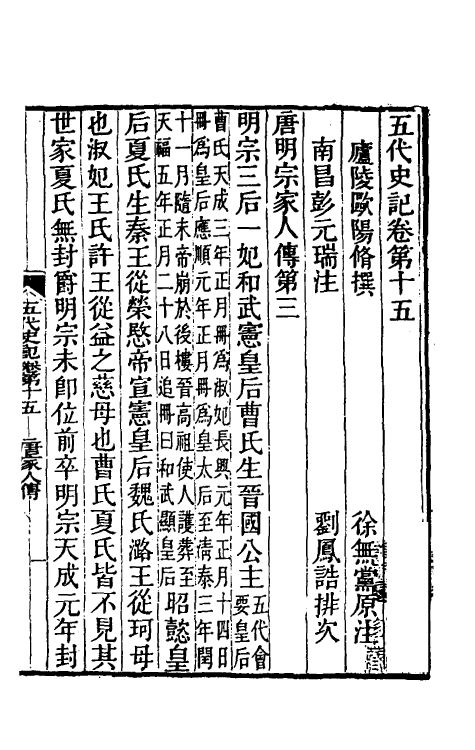 五代史記卷第十五
廬陵歐陽脩撰　徐無黨原注
南昌彭元瑞注　劉鳳誥排次
唐明宗家人傳第三
明宗三后一妃和武憲皇后曹氏生晉國公主五代會要皇后
曹氏天成三年正月冊爲淑妃長興元年正月十四日
冊爲皇后應順元年正月冊爲皇太后至淸泰三年閏
十一月隨末帝崩於後樓晉高祖使人護葬至
天福五年正月二十八日追冊曰和武顯皇后昭懿皇
后夏氏生秦王從榮愍帝宣憲皇后魏氏潞王從珂母
也淑妃王氏許王從益之慈母也曹氏夏氏皆不見其
世家夏氏無封爵明宗未卽位前卒明宗天成元年封
五代史記卷第十五　唐家人傳　一